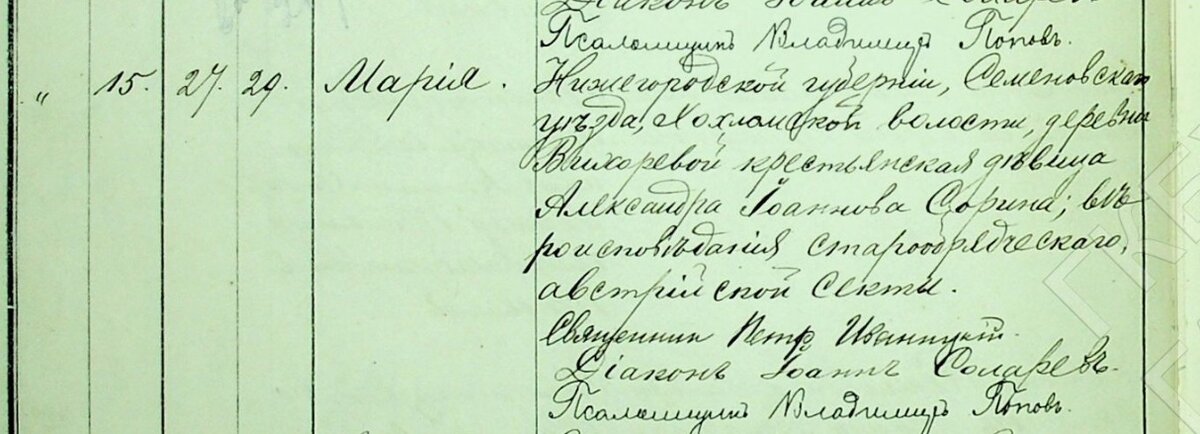 Діаконъ Іоаннъ Соларевъ
Псаломщикъ Владимиръ Поповъ.
„ 15. 27. 29. Марія. Нижегородской губерніи, Семеновскаго
уѣзда, Хохломской волости, деревни
Вихоревой крестьянская дѣвица
Александра Іоаннова Сорина; вѣ
роисповѣданія старообрядческаго,
австрійской секты.
Священник Петр
Діаконъ Іоаннъ Соларевъ.
Псаломщикъ Владимиръ Поповъ.